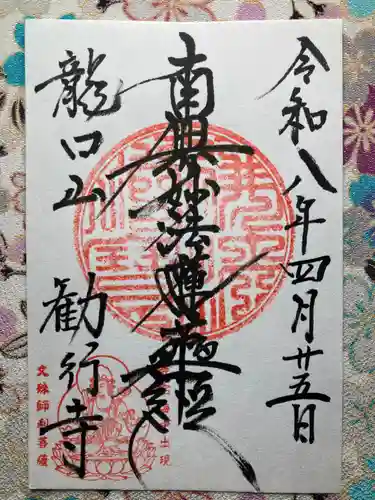 令和八年四月廿五日
南無妙法蓮華
龍口山 勧行寺
文殊師利菩薩
出現